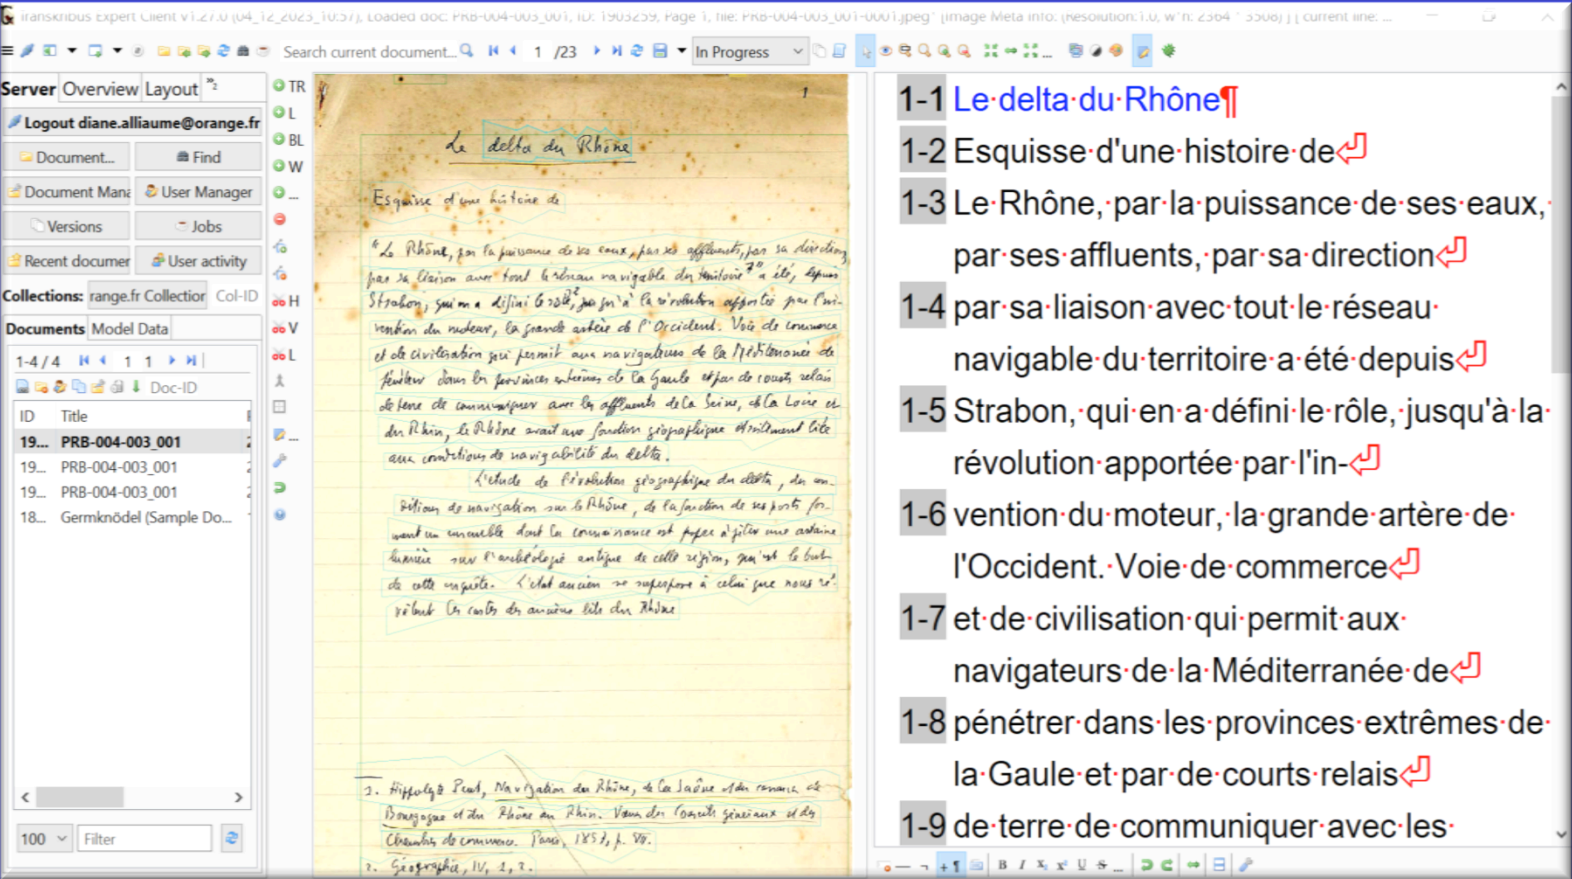 Transkribus Expert Client v1.27.0 (04_12_2023_10:57), Loaded doc: PRB-004-003_001, ID: 1903259, Page 1, file: PRB-004-003_001-0001.jpeg* [Image Meta Info: (Resolution:1.0, w*h: 2364 * 3508) ] [ current line: ...
Search current document...
1 /23
In Progress
Server Overview Layout »2
Logout diane.alliaume@orange.fr
Document... Find
Document Mana User Manager
Versions Jobs
Recent documer User activity
Collections: range.fr Collection Col-ID
Documents Model Data
1-4 / 4 1 1
Doc-ID
ID Title
19... PRB-004-003_001
19... PRB-004-003_001
19... PRB-004-003_001
18... Germknödel (Sample Do...
100 Filter
TR
L
BL
W
...
H
V
L
...
1
Le delta du Rhône
Esquisse d'une histoire de
"Le Rhône, par la puissance de ses eaux, par ses affluents, par sa direction,
par sa liaison avec tout le réseau navigable du territoire" a été, depuis
Strabon, qui en a défini le rôle, jusqu'à la révolution apportée par l'in-
vention du moteur, la grande artère de l'Occident. Voie de commerce
et de civilisation qui permit aux navigateurs de la Méditerranée de
pénétrer dans les provinces extrêmes de la Gaule et par de courts relais
de terre de communiquer avec les affluents de la Seine, de la Loire et
du Rhin, le Rhône avait une fonction géographique étroitement liée
aux conditions de navigabilité du delta.
L'étude de l'évolution géographique du delta, des con-
ditions de navigation sur le Rhône, de la fonction de ses ports for-
ment un ensemble dont la connaissance est propre à jeter une certaine
lumière sur l'archéologie antique de cette région, qui est le but
de cette enquête. L'état ancien se superpose à celui que nous ré-
vèlent les cartes des anciens lits du Rhône
1. Hippolyte Peut, Navigation du Rhône, de la Saône et du canal de
Bourgogne et du Rhône au Rhin. Vœux des Conseils généraux et des
Chambres de commerce. Paris, 1857, p.
2. Géographie, IV, 1, 2.
1-1 Le·delta·du·Rhône¶
1-2 Esquisse·d'une·histoire·de
1-3 Le·Rhône,·par·la·puissance·de·ses·eaux,·
par·ses·affluents,·par·sa·direction
1-4 par·sa·liaison·avec·tout·le·réseau·
navigable·du·territoire·a·été·depuis
1-5 Strabon,·qui·en·a·défini·le·rôle,·jusqu'à·la·
révolution·apportée·par·l'in-
1-6 vention·du·moteur,·la·grande·artère·de·
l'Occident.·Voie·de·commerce
1-7 et·de·civilisation·qui·permit·aux·
navigateurs·de·la·Méditerranée·de
1-8 pénétrer·dans·les·provinces·extrêmes·de·
la·Gaule·et·par·de·courts·relais
1-9 de·terre·de·communiquer·avec·les·